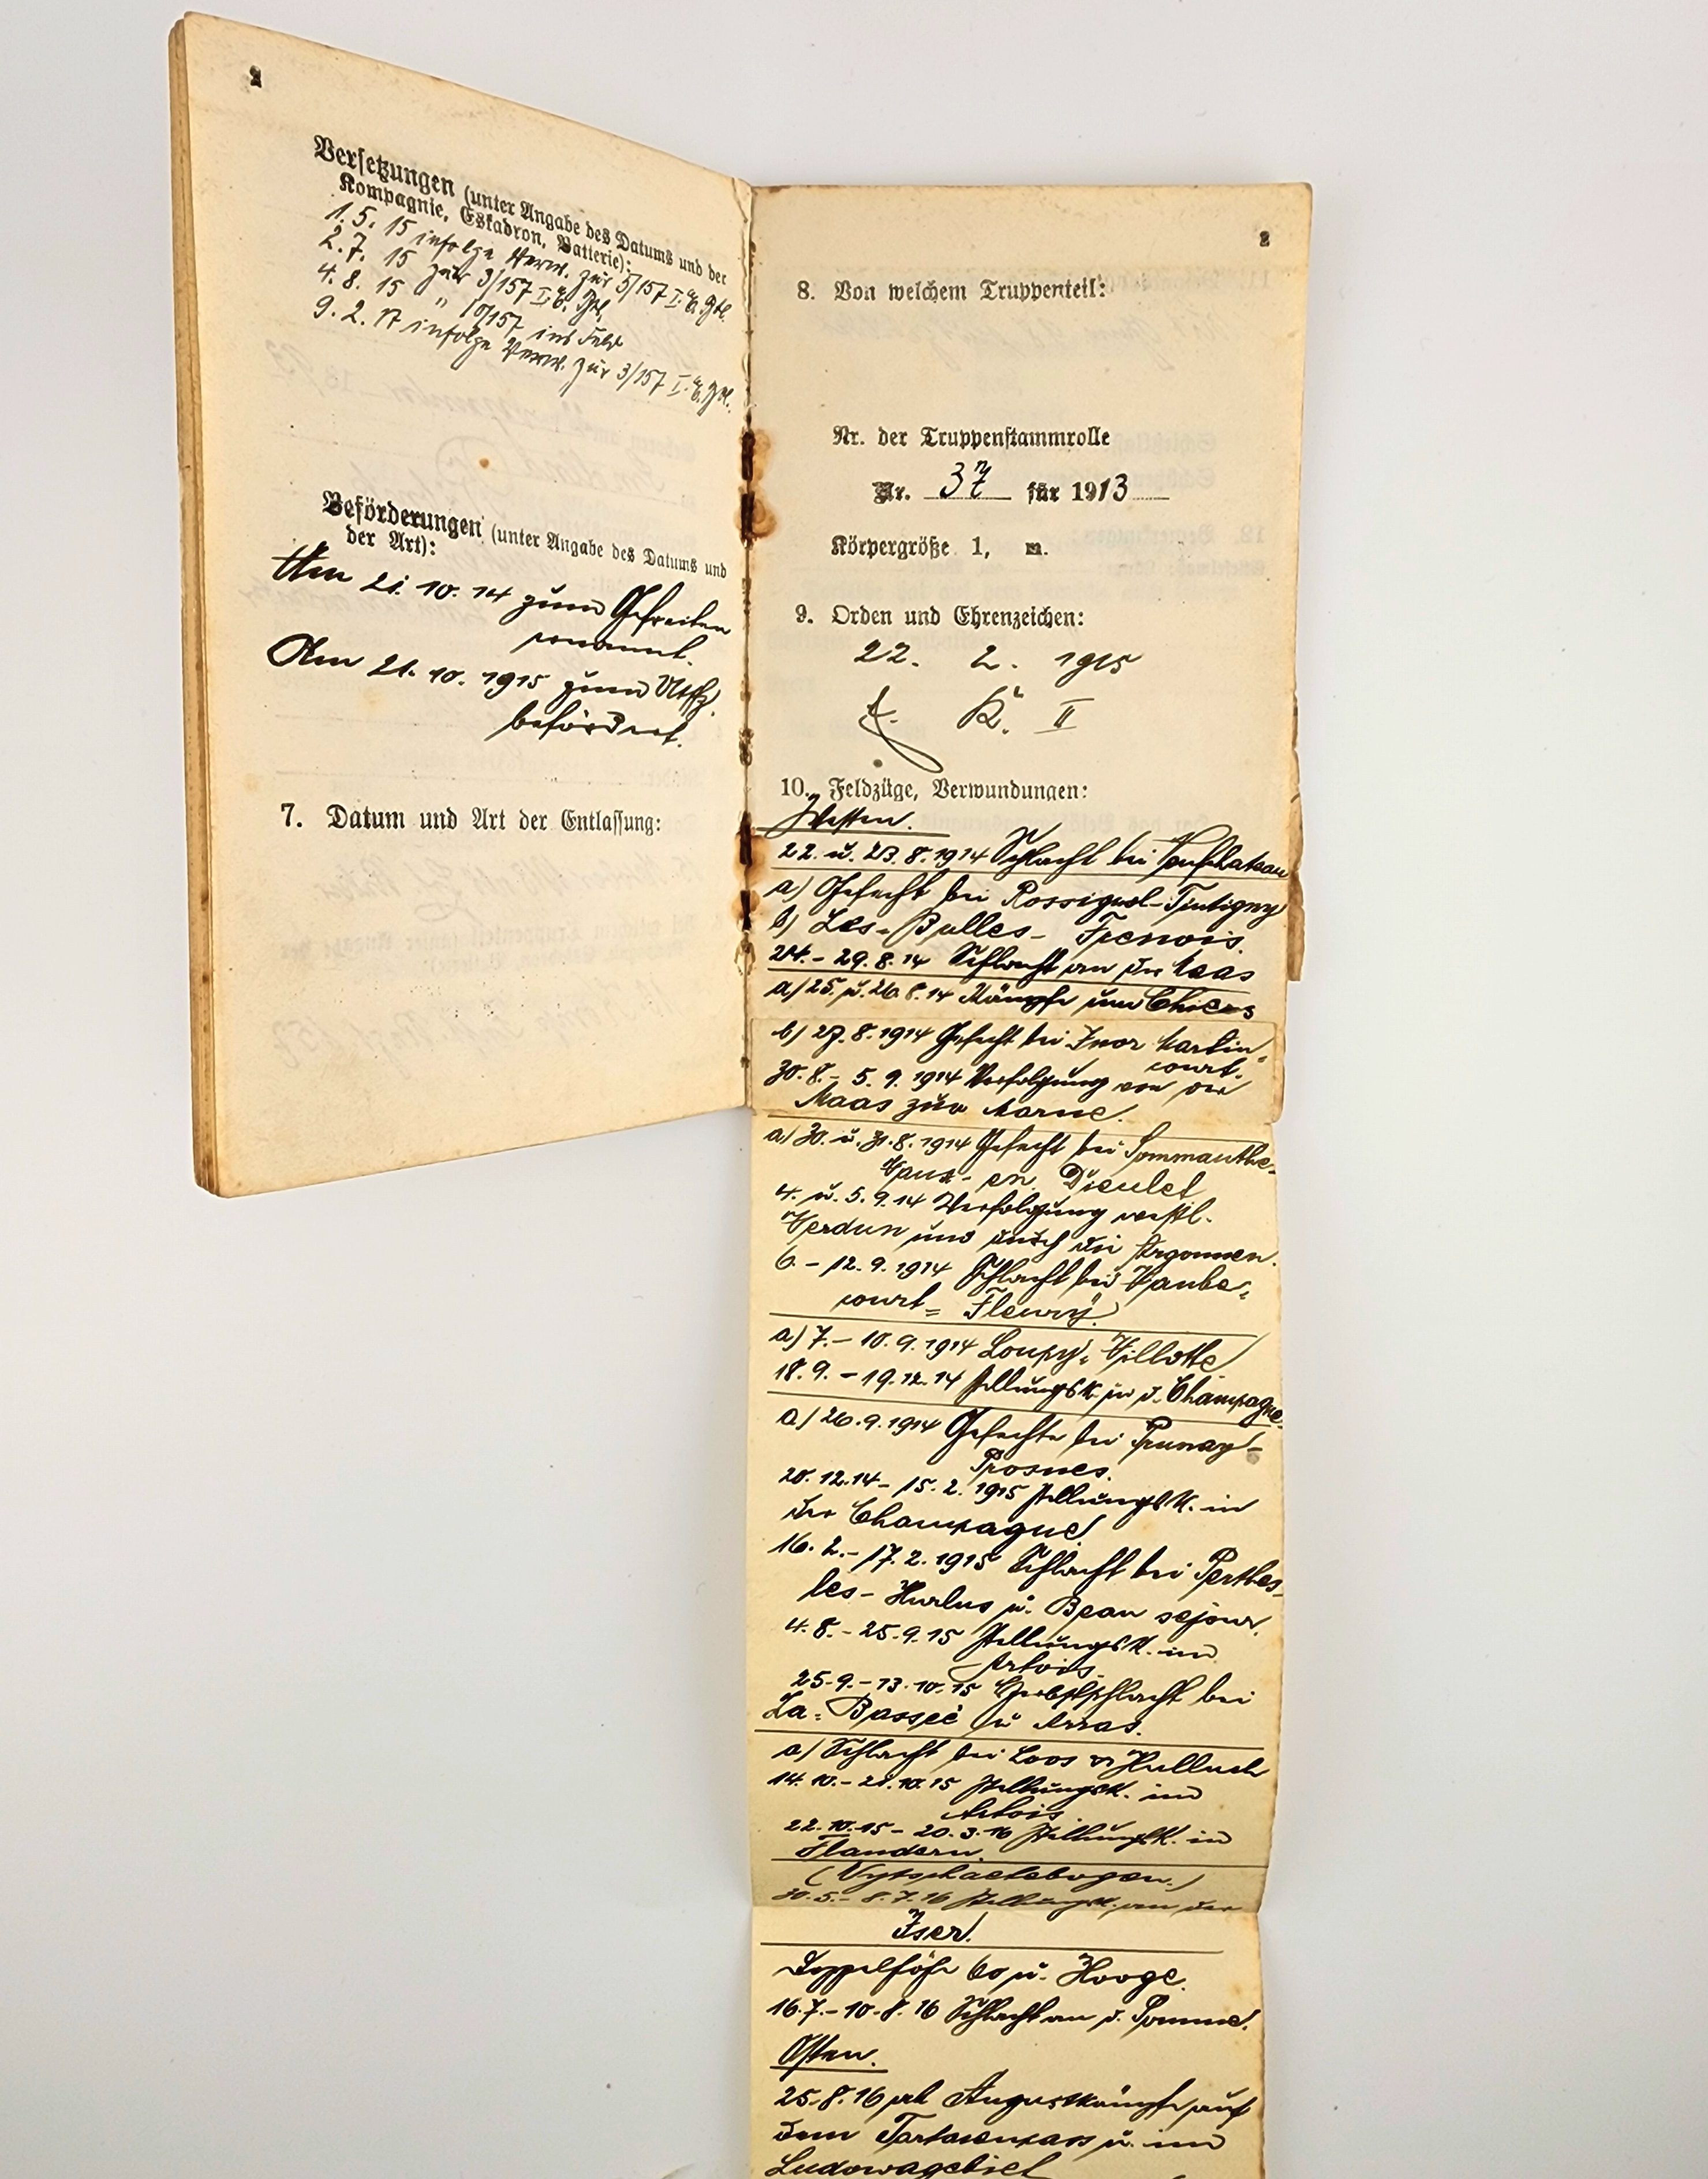 2
Versetzungen (unter Angabe des Datums und der
Kompagnie, Eskadron, Batterie):
1. 5. 15 infolge Verw. zur 5/157 I. E. Btl.
2. 7. 15 zur 3/157 I. E. Btl.
4. 8. 15 " 10/157 ins Feld
9. 2. 17 infolge Verw. zur 3/157 I. E. Btl.
Beförderungen (unter Angabe des Datums und
der Art):
Am 21. 10. 14 zum Gefreiten
ernannt.
Am 21. 10. 1915 zum Utffz.
befördert.
7. Datum und Art der Entlassung:
2
8. Von welchem Truppenteil:
Nr. der Truppenstammrolle
Nr. 37 für 1913
Körpergröße 1, m.
9. Orden und Ehrenzeichen:
22. 2. 1915
E. K. II
10. Feldzüge, Verwundungen:
Westen.
22. u. 23. 8. 1914 Schlacht bei Neufchateau
a) Gefecht bei Rossignol-Tintigny
b) Les-Bulles-
24. - 29. 8. 14 Schlacht an der Maas
a) 25. u. 26 8. 14 Kämpfe um Chiers
b) 27. 8. 1914 Gefecht bei Inor Martin-
court.
30. 8. - 5. 9. 1914 Verfolgung von der
Maas zur Marne.
a) 30. u. 31. 8. 1914 Gefecht bei Sommauthe-
Vaux-en Dieulet
4. u. 5. 9. 14 Verfolgung westl.
Verdun und durch die Argonnen.
6. - 12. 9. 1914 Schlacht bei Vaube-
court= Fleury.
a) 7. - 10. 9. 1914 Louppy= Villotte
18. 9. - 19. 12. 14 Stellungsk. in d. Champagne.
a) 26. 9. 1914 Gefechte bei Prunay-
Prosnes.
20. 12. 14 - 15. 2. 1915 Stellungsk. in
der Champagne.
16. 2. - 17. 2. 1915 Schlacht bei Perthes-
les-Hurlus u. Beau sejour.
4. 8. - 25. 9. 15 Stellungsk. im
Artois.
25. 9. - 13. 10. 15 Herbstschlacht bei
La= Bassée u Arras.
a) Schlacht bei Loos u Hulluch
14. 10. - 21. 10. 15 Stellungsk. im
Artois.
22. 10. 15 - 20. 3. 16 Stellungsk. in
Flandern.
(Wytschaetebogen.)
30. 5. - 8. 7. 16 Stellungsk. an der
Iser.
Doppelhöhe 60 u. Hooge.
16. 7. - 10. 8. 16 Schlacht an d. Somme.
Osten.
25. 8. 16 ab Augustkämpfe auf
dem Tartarenpass u. im
Ludowagebiet